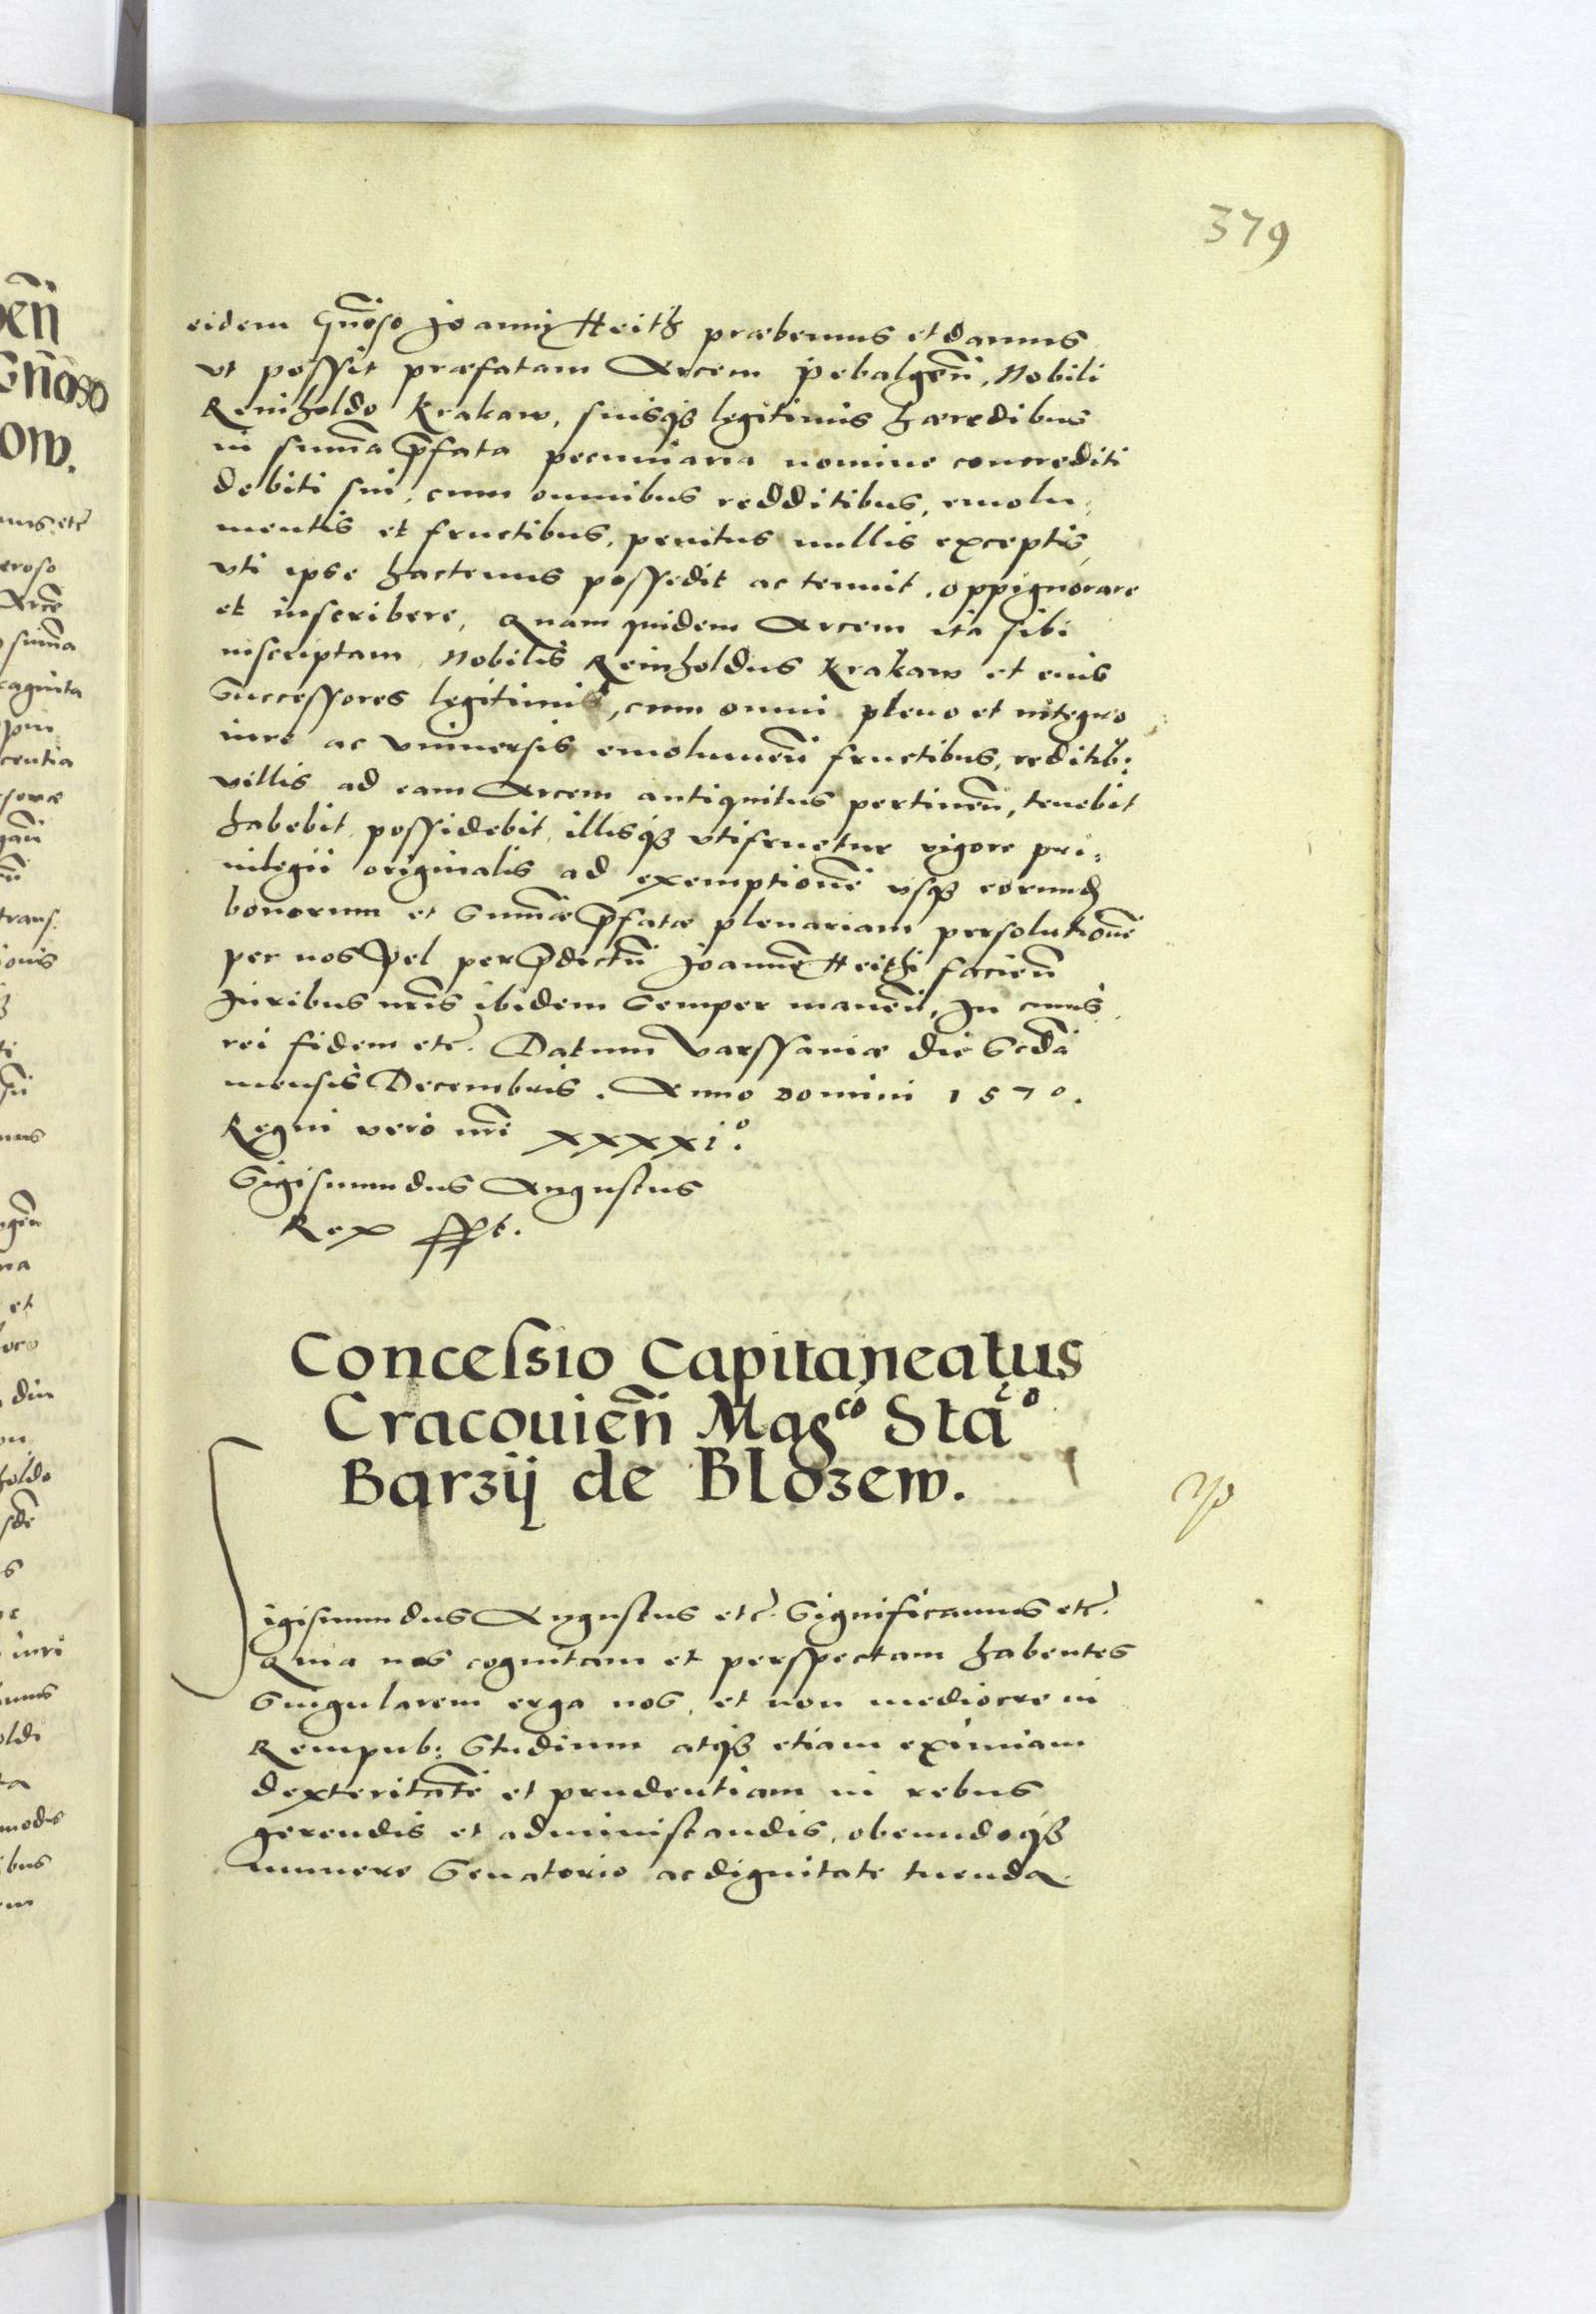 379
eidem Gñoso Joanni Heith præbemus et damus
vt possit præfatam Arcem Pebalgeñ, Nobili
Reinholdo Krakaw, suisq́ʒ legitimis hæredibus
in sum̃a p̃fata pecuniaria nomine concrediti
debiti sui, cum omnibus redditibus, emolu,
mentis et fructibus, penitus nullis exceptis,
vti ipse hactenus possedit ac tenuit, oppignorare
et inscribere, Quam quidem Arcem ita sibi
inscriptam, Nobilis Reinholdus Krakaw et eius
Successores legitimi, cum omni pleno et integro
iure ac vniuersis emolumeñ fructibus, reditib:
villis ad eam Arcem antiquitus pertineñ, tenebit
habebit, possidebit, illisq́ʒ vtifruetur vigore pri,
uilegii originalis ad exemptionẽ vsq́ʒ eorund
bonorum et Sum̃æ p̃fatæ plenariam persolutionẽ
per nos Vel per p̃dictũ Joannẽ Heith facieñ
Juribus nr̃is ibidem Semper maneñ, In cuius
rei fidem etc̃. Datum Varssauiæ die Scdã
mensis Decembris. Anno Domini 1570.
Regni vero nr̃i xxxxi°.
Sigismundus Augustus
Rex sspt.
Concessio Capitaneatus
Cracouieñ Magcó Staº
Barzij de Blozew.
Sigismundus Augustus etc̃. Significamus etc̃.
Quia nos cognitam et perspectam habentes
Singularem erga nos, et non mediocre in
Rempub: Studium atq́ʒ etiam eximiam
dexteritatẽ et prudentiam in rebus
gerendis et administandis, obeundoq́ʒ
munere Senatorio ac dignitate tuenda